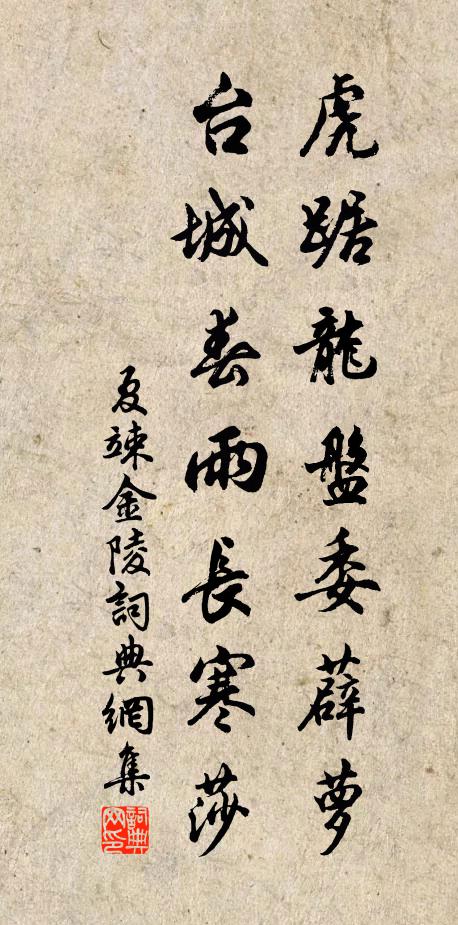 虎踞龍盤委薜蘿
台城春雨長寒莎
夏竦金陵詞典網集
詞典網印